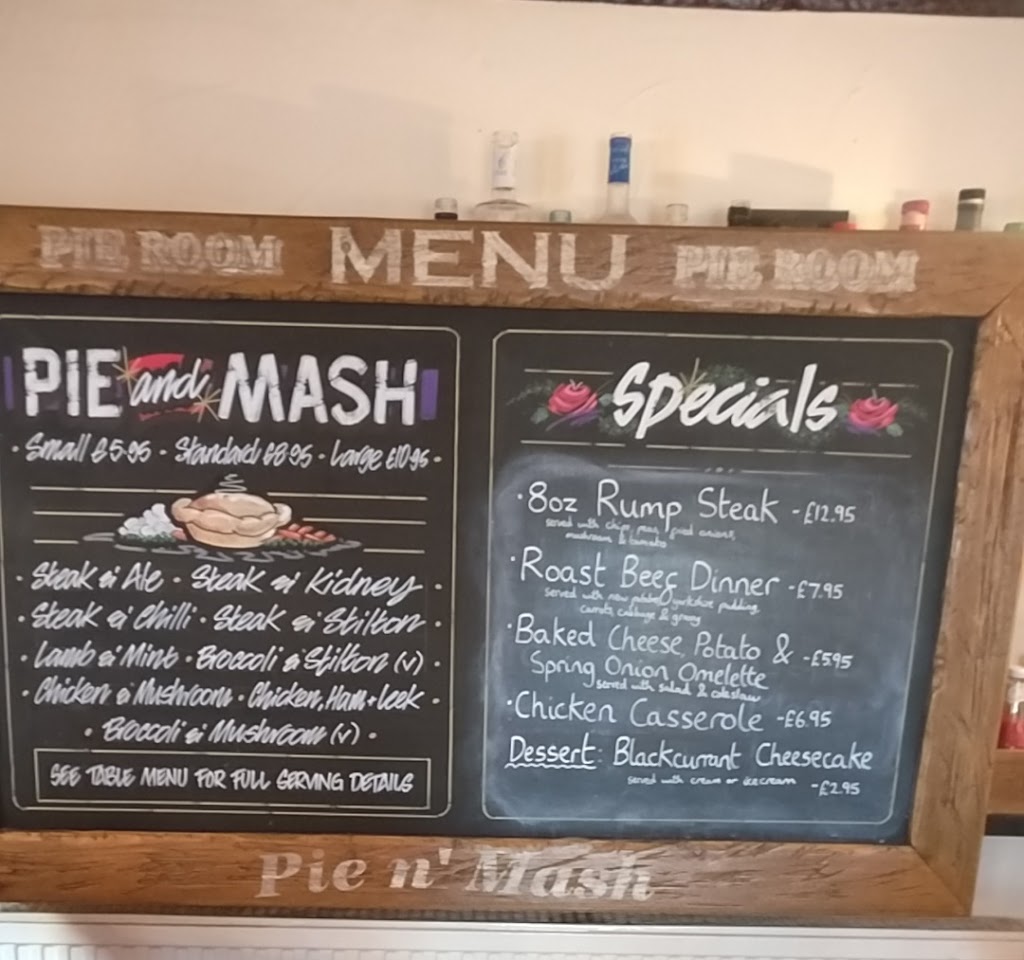 PIE ROOM MENU PIE ROOM
PIE and MASH
• Small £5.95 • Standard £8.95 • Large £10.95 •
• Steak & Ale • Steak & Kidney •
• Steak & Chilli • Steak & Stilton •
• Lamb & Mint • Broccoli & Stilton (v) •
• Chicken & Mushroom • Chicken, Ham + Leek •
• Broccoli & Mushroom (v) •
SEE TABLE MENU FOR FULL SERVING DETAILS
Specials
• 8oz Rump Steak - £12.95
served with chips, peas, fried onions,
mushroom & tomato
• Roast Beef Dinner - £7.95
served with new potatoes, yorkshire pudding,
carrots, cabbage & gravy
• Baked Cheese, Potato &
Spring Onion Omelette - £5.95
served with salad & coleslaw
• Chicken Casserole - £6.95
Dessert: Blackcurrant Cheesecake
served with cream or ice cream - £2.95
Pie n' Mash